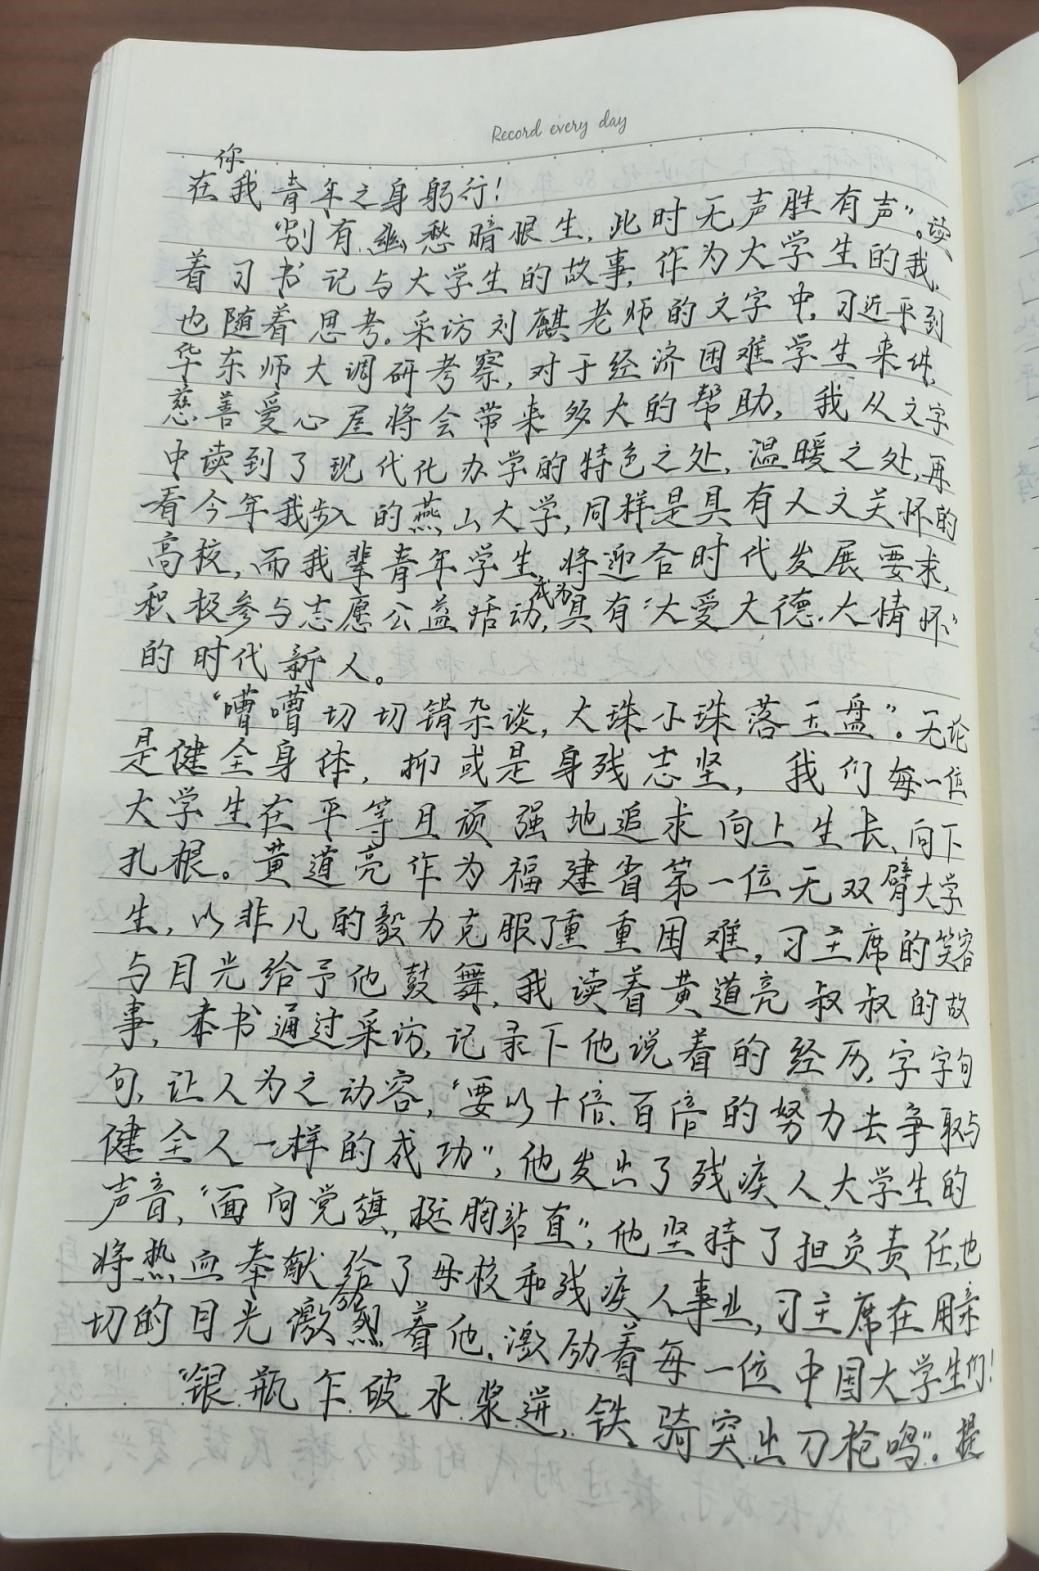 Record every day
你
在我青年之身躬行！
“别有幽愁暗恨生，此时无声胜有声”。读
着习书记与大学生的故事，作为大学生的我，
也随着思考。采访刘麒老师的文字中，习近平到
华东师大调研考察，对于经济困难学生来讲，
慈善爱心屋将会带来多大的帮助，我从文字
中读到了现代化办学的特色之处，温暖之处，再
看今年我步入的燕山大学，同样是具有人文关怀的
高校，而我辈青年学生，将迎合时代发展要求，
积极参与志愿公益活动，成为具有“大爱大德大情怀”
的时代新人。
“嘈嘈切切错杂谈，大珠小珠落玉盘”。无论
是健全身体，抑或是身残志坚，我们每一位
大学生在平等且顽强地追求向上生长、向下
扎根。黄道亮作为福建省第一位无双臂大学
生，以非凡的毅力克服了重重困难，习主席的笑容
与目光给予他鼓舞，我读着黄道亮叔叔的故
事，本书通过采访，记录下他说着的经历，字字句
句，让人为之动容，“要以十倍、百倍的努力去争取与
健全人一样的成功”，他发出了残疾人大学生的
声音，“面向党旗，挺胸站直”，他坚持了担负责任，也
将热血奉献给了母校和残疾人事业，习主席在用亲
切的目光激励着他、激励着每一位中国大学生们！
“银瓶乍破水浆迸，铁骑突出刀枪鸣”。提